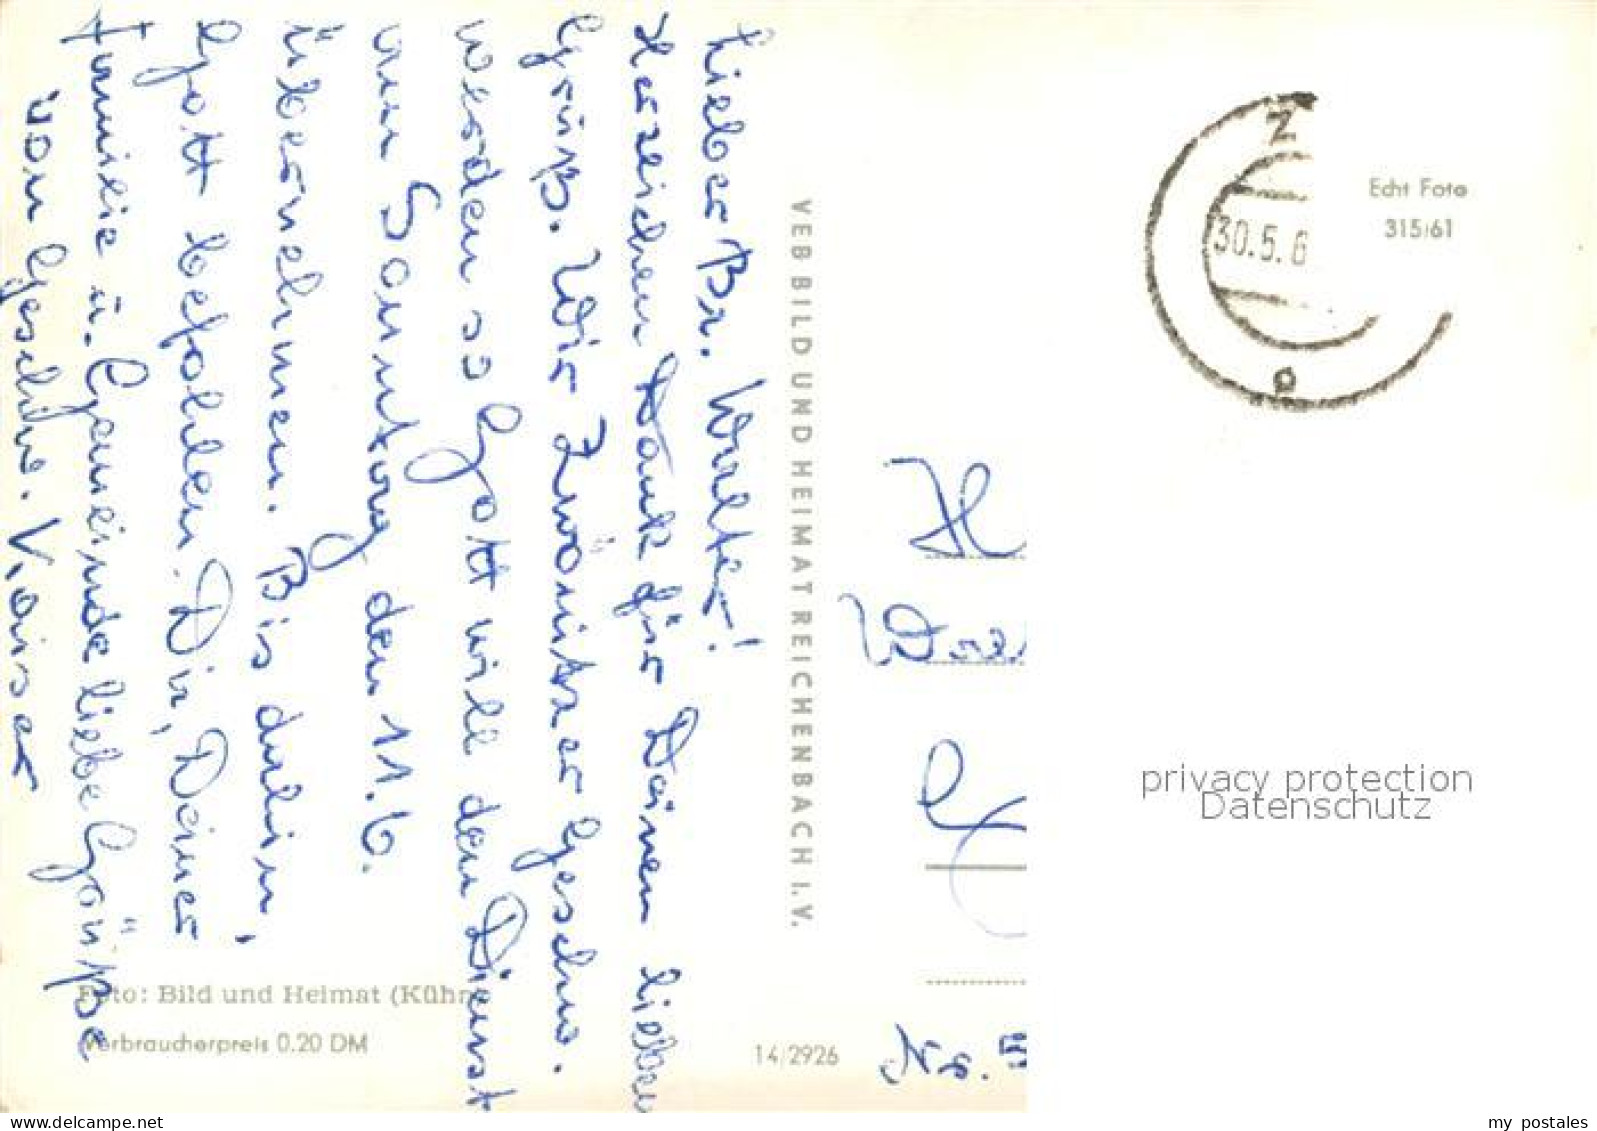 Lieber Br. Walter!
Herzlichen Dank für Deinen lieben
Gruß. Wir Zwönitzer Geschw.
werden so Gott will den Dienst
am Sonntag den 11. 6.
übernehmen. Bis dahin,
Gott befohlen. Dir, Deiner
Familie u. Gemeinde liebe Grüße
von Geschw. Kaiser
VEB BILD UND HEIMAT REICHENBACH I. V.
Foto: Bild und Heimat (Kühn
Verbraucherpreis 0.20 DM
14/2926
Z
30.5.6
Echt Foto
315/61
privacy protection
Datenschutz
delcampe.net
my_postales